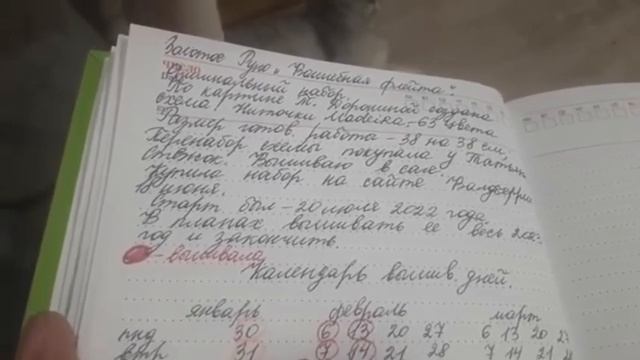 Золотое Руно „Волшебная флейта"
Оригинальный набор.
По картине М. Дорониной создана
схема. Ниточки Madeira - 63 цвета
Размер готов. работы - 38 на 38 см.
Перенабор схемы покупала у Татьян
Стенюк. Вышиваю в сале.
Купила набор на сайте Валдберри
18 июня.
Старт был - 20 июля 2022 года.
В планах вышивать её весь 202
год и закончить.
- вышивала
Календарь вышив. дней.
январь февраль март
пнд 30 6 13 20 27 6 13 20 2
втр 31 7 14 21 28 7 14 21